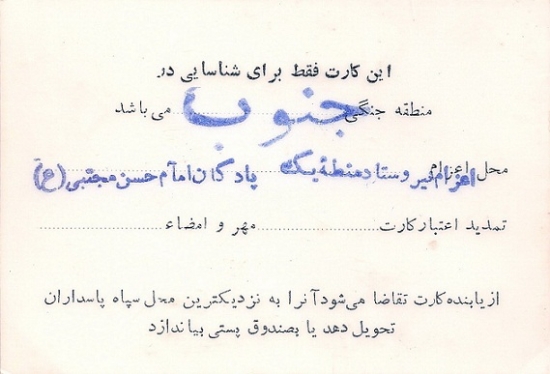 این کارت فقط برای شناسایی در
منطقه جنگی جنوب می باشد
محل اعزام اعزام نیرو ستاد منطقه یک پادگان امام حسن مجتبی (ع)
تمدید اعتبار کارت مهر و امضاء
از یابنده کارت تقاضا می شود آنرا به نزدیکترین محل سپاه پاسداران
تحویل دهد یا بصندوق پستی بیاندازد